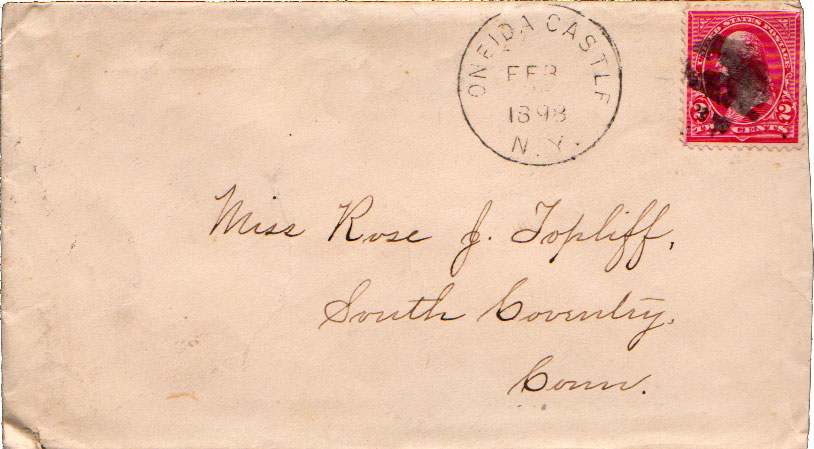 ONEIDA CASTLE
FEB
1898
N.Y.
UNITED STATES POSTAGE
2 2
TWO CENTS
Miss Rose J. Topliff,
South Coventry,
Conn.